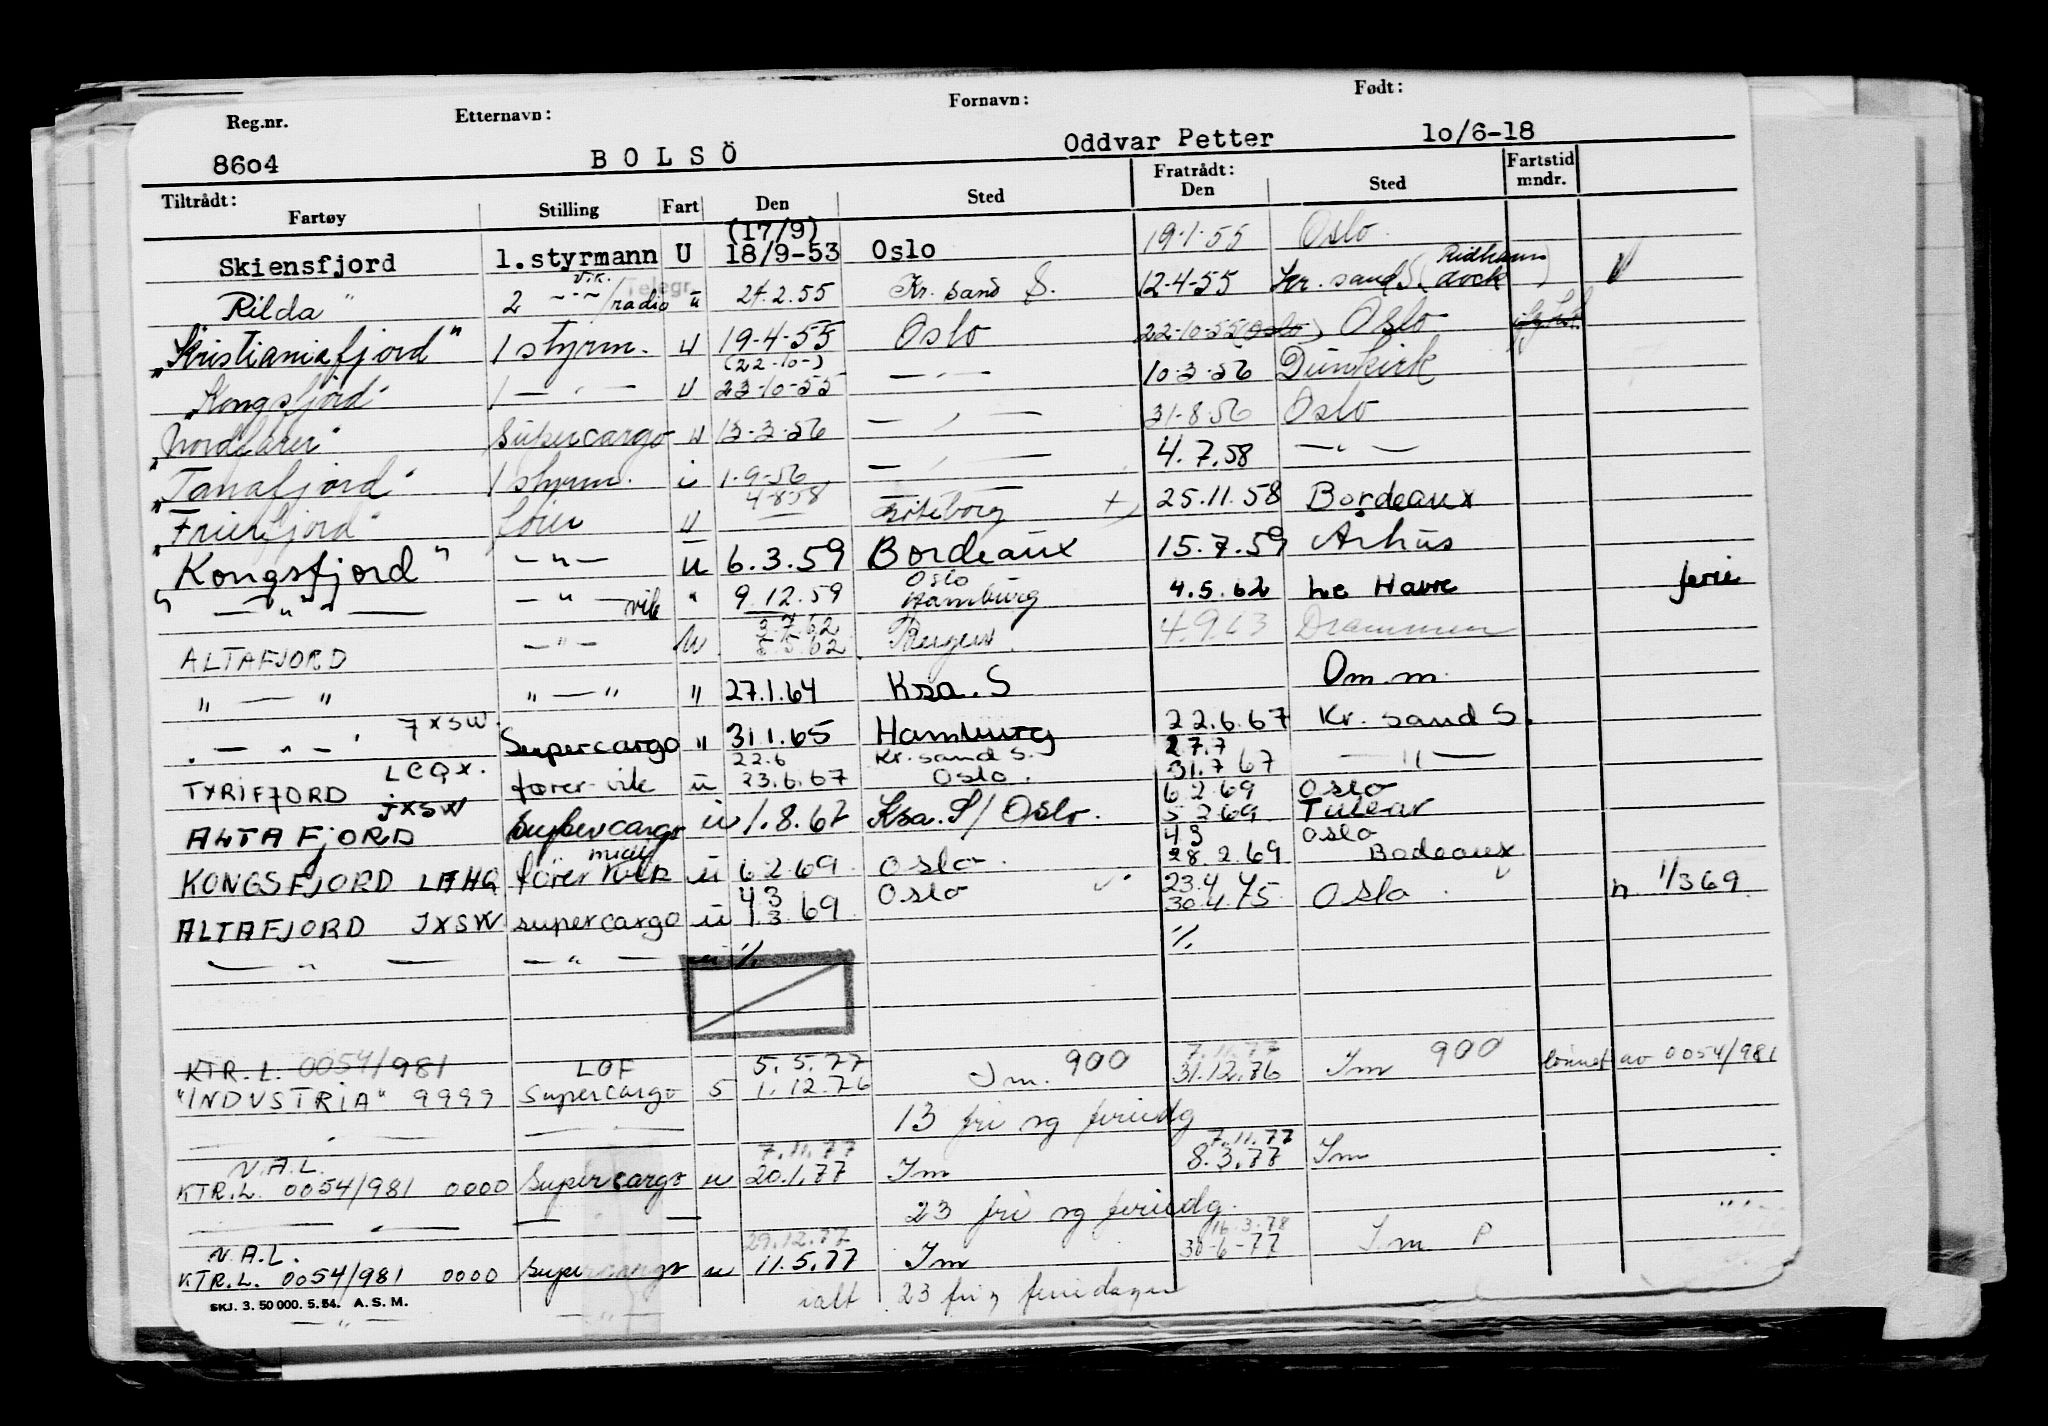 Reg.nr. Etternavn: Fornavn: Født:
8604 BOLSÖ Oddvar Petter 10/6-18
Tiltrådt: Fratrådt: Fartstid mndr.
Fartøy Stilling Fart Den Sted Den Sted
(17/9)
Skiensfjord 1.styrmann U 18/9-53 Oslo 19.1.55 Oslo
Rilda " 2 -"- vik. /radio Telegr. u 24.2.55 Kr. sand S. 12-4-55 Kr. sand S. ( dock)
"Kristianiafjord" 1 styrm. u 19-4-55 Oslo 22-10-55 (Oslo) Oslo
(22-10-)
"Kongsfjord" 1 — " — u 23-10-55 — " — 10-3-56 Dunkirk
"Nordfarer" Supercargo u 13-3-56 — " — 31-8-56 Oslo
"Tanafjord" 1 styrm. u 1-9-56 — " — 4.7.58 — " —
"Frierfjord" fører u 4-8-58 Göteborg 25.11.58 Bordeaux
"Kongsfjord" — " — u 6.3.59 Bordeaux 15.7.59 Århus
" — " — — " — vik " 9.12.59 Oslo Hamburg 4.5.62 Le Havre ferie
3.7.62
ALTAFJORD — " — u 5.5.62 Bergen 4.9.63 Drammen
" — " " — " " 27.1.64 Ksa. S Om.m.
" — " — " JXSW. Supercargo " 31.1.65 Hamburg 22.6.67 Kr. sand S.
22.6 Kr. sand S. 27.7
TYRIFJORD LCQX. fører vik u 23.6.67 Oslo. 31.7 67 — " —
6 2 69 Oslo
ALTAFJORD JXSW Supercargo u 1.8.67 Ksa. S/ Oslo. 5 2 69 Tulear
4 3 Oslo
KONGSFJORD LFHQ fører vik u 6 2 69 Oslo 28.2.69 Bodeaux
4 3 23.4
ALTAFJORD JXSW supercargo u 1.3.69 Oslo 30.4.75 Oslo. n. 1/3 69
— " — — " — u %. %.
KTR.L. 0054/981 LOF 5.5.77 7.11.77
"INDUSTRIA" 9999 Supercargo S 1.12.76 Im. 900 31.12.76 Im 900 lønnet av 0054/981
— " — — " — 13 fri og feriedg
N.A.L. 7.11.77 7.11.77
KTR.L. 0054/981 0000 Supercargo u 20.1.77 Im 8.3.77 Im
— " — — " — 23 fri og feriedg.
N.A.L. 29.12.77 16.3.78
KTR.L. 0054/981 0000 Supercargo u 11.5.77 Im 30-6-77 Im P
SKJ. 3. 50 000. 5. 54. A. S. M. — " — ialt 23 fri og feriedager
— " —